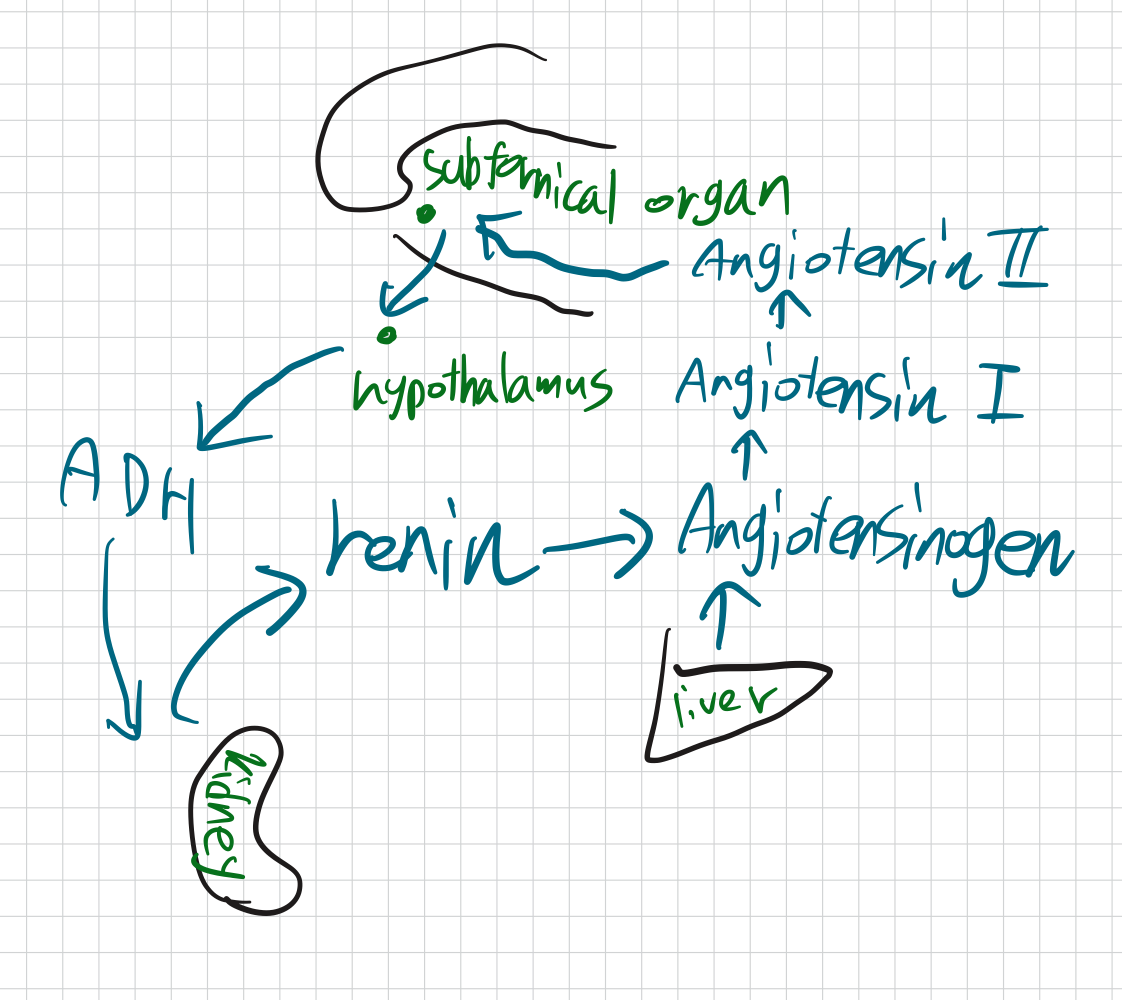 subfornical organ
Angiotensin II
hypothalamus
Angiotensin I
ADH
renin
Angiotensinogen
liver
kidney